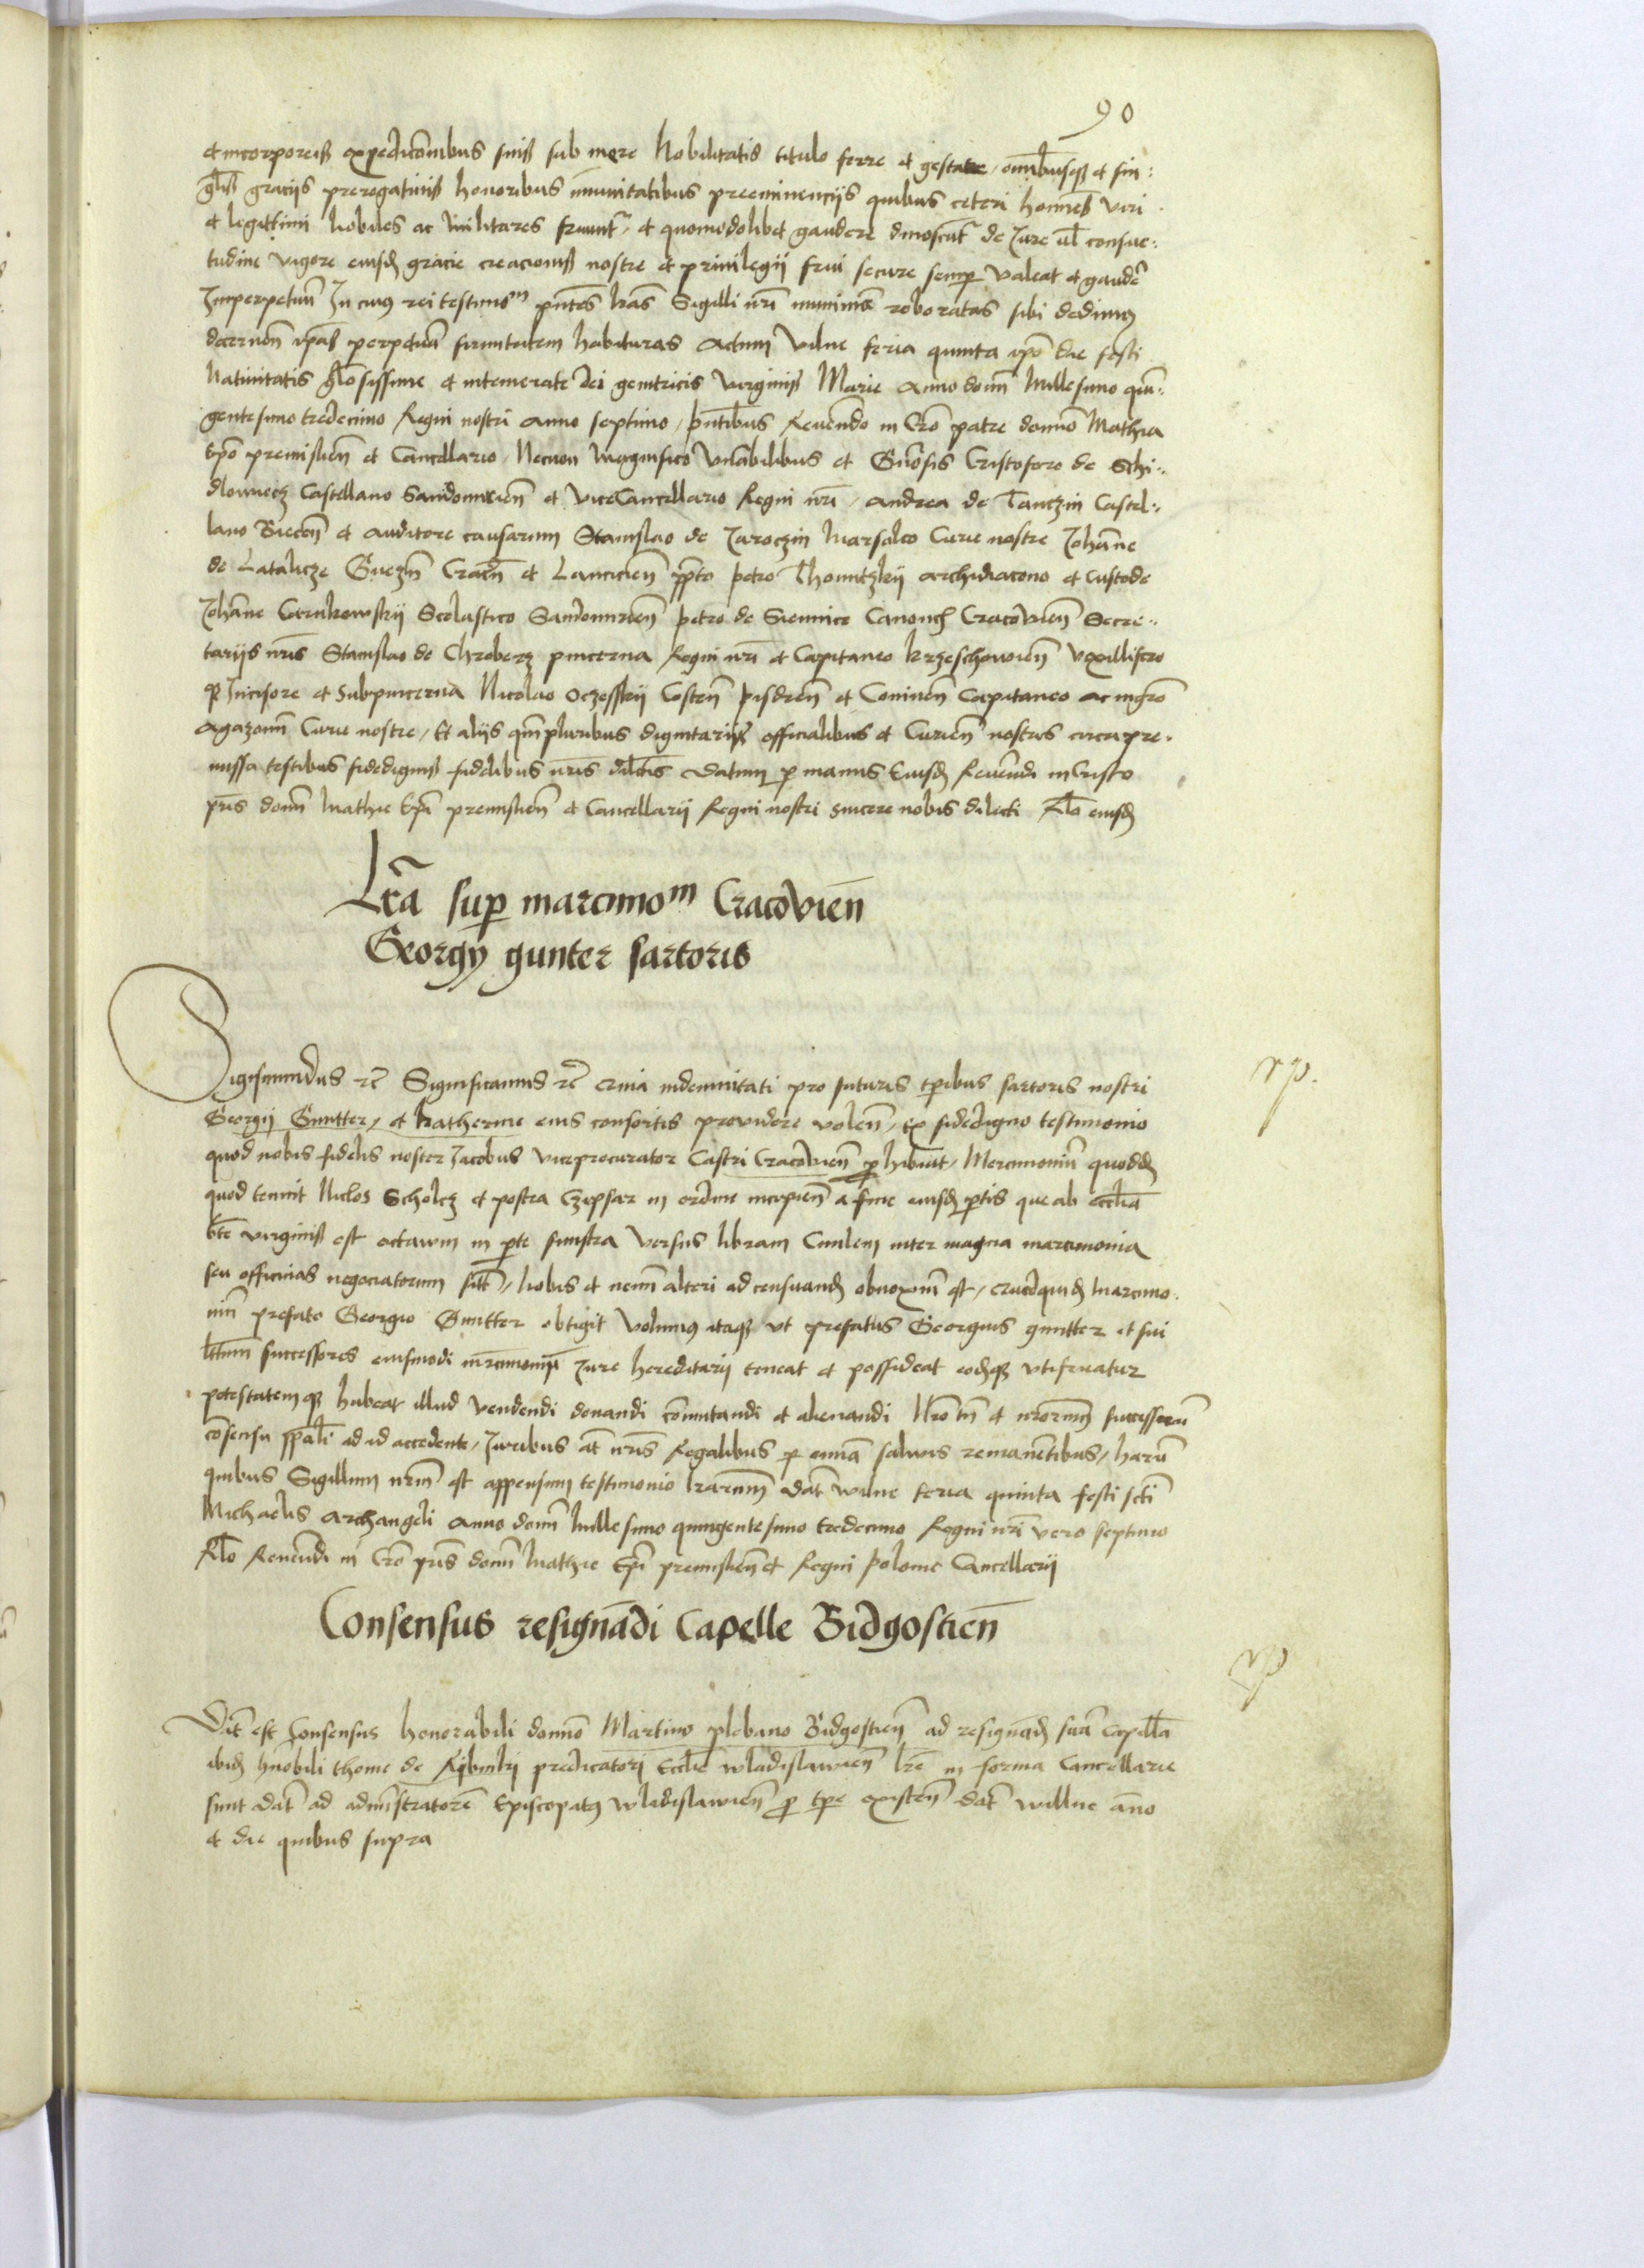 90
et incorporeis expedicōnibus suis sub mere Nobilitatis titulo ferre et gestare, omībusq; et sin:
gl̄is graciis prerogativis honoribus īmunitatibus preeminenciis quibus ceteri homēs viri
et legittimi nobiles ac militares fruunt̄, et quomodolibet gaudere dinoscūt̄ de Jure ul̄ consue:
tudine vigore eiusd̄ gracie creacionis nostre et privilegii frui secure semp̄ valeat et gaudē
Imperpetuū In cuius rei testimoᵐ pn̄tes lr̄as Sigilli nr̄i munimīe roboratas sibi dedimus
decernen̄ ip̄as perpetuā firmitatem habituras Actum Vilne feria quinta ip̄o die festi
Nativitatis gl̄osissime et intemerate dei genitricis virginis Marie Anno domī Millesimo quin:
gentesimo tredecimo Regni nostri Anno septimo, pn̄tibus Reverēndo in Cr̄o patre domīo Mathia
Ep̄o premislien̄ et Cancellario, Necnon Magnifico Vn̄abilibus et Gn̄osis Cristoforo de Schi:
dlowyecz Castellano Sandomirien̄ et ViceCancellario Regni nr̄i, Andrea de Tanczin Castel:
lano Biecen̄ et auditore causarum Stanislao de Jaroczin Marsalco Curie nostre Johāne
de Latalicze Gnezn̄ Cracn̄ et Lancicien̄ pp̄to petro Thomitzkij archidiacono et Custode
Johāne Carnkowskij Scolastico Sandomirien̄ petro de Siennice Canonc̄ Cracovien̄ Secre:
tariis nr̄is Stanislao de Chroberz pincerna Regni nr̄i et Capitaneo krzeschowien̄ vexillifero
Incisore et Subpincerna Nicolao Costen̄ pisdren̄ et Coninen̄ Capitaneo ac mgr̄o
agazonū Curie nostre, Et aliis qm̄pluribus dignitariis officialibus et Curien̄ nostris circa pre:
missa testibus fidedignis fidelibus nr̄is dil̄ctis Datum p̄ manus Eiusd̄ Reverēndi in Cristo
pr̄is domī Mathie Ep̄i premislien̄ et Cancellarii Regni nostri sincere nobis dilecti Rl̄o eiusd̄
Lr̄a sup̄ marcimoᵐ Cracovien̄
Georgij gunter sartoris
Sigismundus rc̄ Significamus rc̄ Q̄uia indemnitati pro futuris tp̄ribus sartoris nostri
Georgij Guntter, et katherine eius consortis providere volen̄, Ex fidedigno testimonio
quod nobis fidelis noster Jacobus viceprocurator Castri Cracovien̄ p̄hibuit, Mercimoniū quodd̄
quod tenuit Niclos Scholcz et postea Czepsar in ordine incipien̄ a fine eiusd̄ p̄tis que ab eccl̄ia
bt̄e virginis est octavum in p̄te sinistra versus libram Civilem inter magna marcimonia
seu officinas negociatorum sitū, Nobis et nemī alteri ad censuand̄ obnoxiū est, marcimo:
niū prefato Georgio Guntter obtigit Volumus itaq; ut prefatus Georgius guntter et sui
lt̄imi successores eiusmodi Jure hereditarii teneat et possideat eodēq; utifruatur
potestatemq; habeat illud vendendi donandi cōmutandi et alienandi nr̄o tn̄ et nr̄orum successorū
cōsensu spāli ad id accedente, Juribus at̄ nr̄is Regalibus p̄ om̄ia salvis remanētibus, harū
quibus Sigillum nr̄um est appensum testimonio lr̄arum Dat̄ wilne feria quinta festi scti
Michaelis Archangeli Anno domī Millesimo quingentesimo tredecimo Regni nr̄i vero septimo
Rl̄o Reverēndi in Cr̄o pr̄is domī Mathie Ep̄i premislien̄ et Regni polonie Cancellarij
Consensus resignādi Capelle Bidgostien̄
Dat̄ est Consensus honorabili domīo Martino plebano Bidgostien̄ ad resignād̄ suā Capellā
ibid̄ hn̄obili thome de predicatori Eccl̄ie wladislavien̄ lr̄e in forma Cancellarie
sunt dat̄ ad administratorē Episcopatus wladislavien̄ p̄ tp̄e existen̄ dat̄ willne āno
et die quibus supra